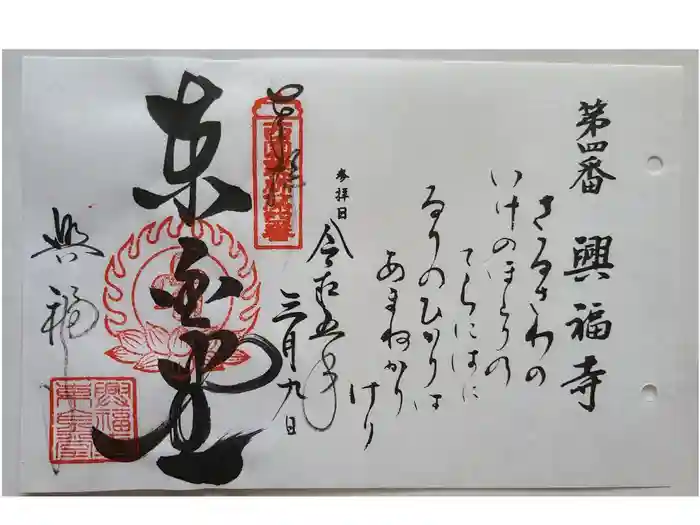 第四番 興福寺
さるさわの
いけのほとりの
てらにはに
るりのひかりは
あまねかり
けり
参拝日
令和五年
三月九日
奉拝
東金堂
興福寺
興福寺
東金堂